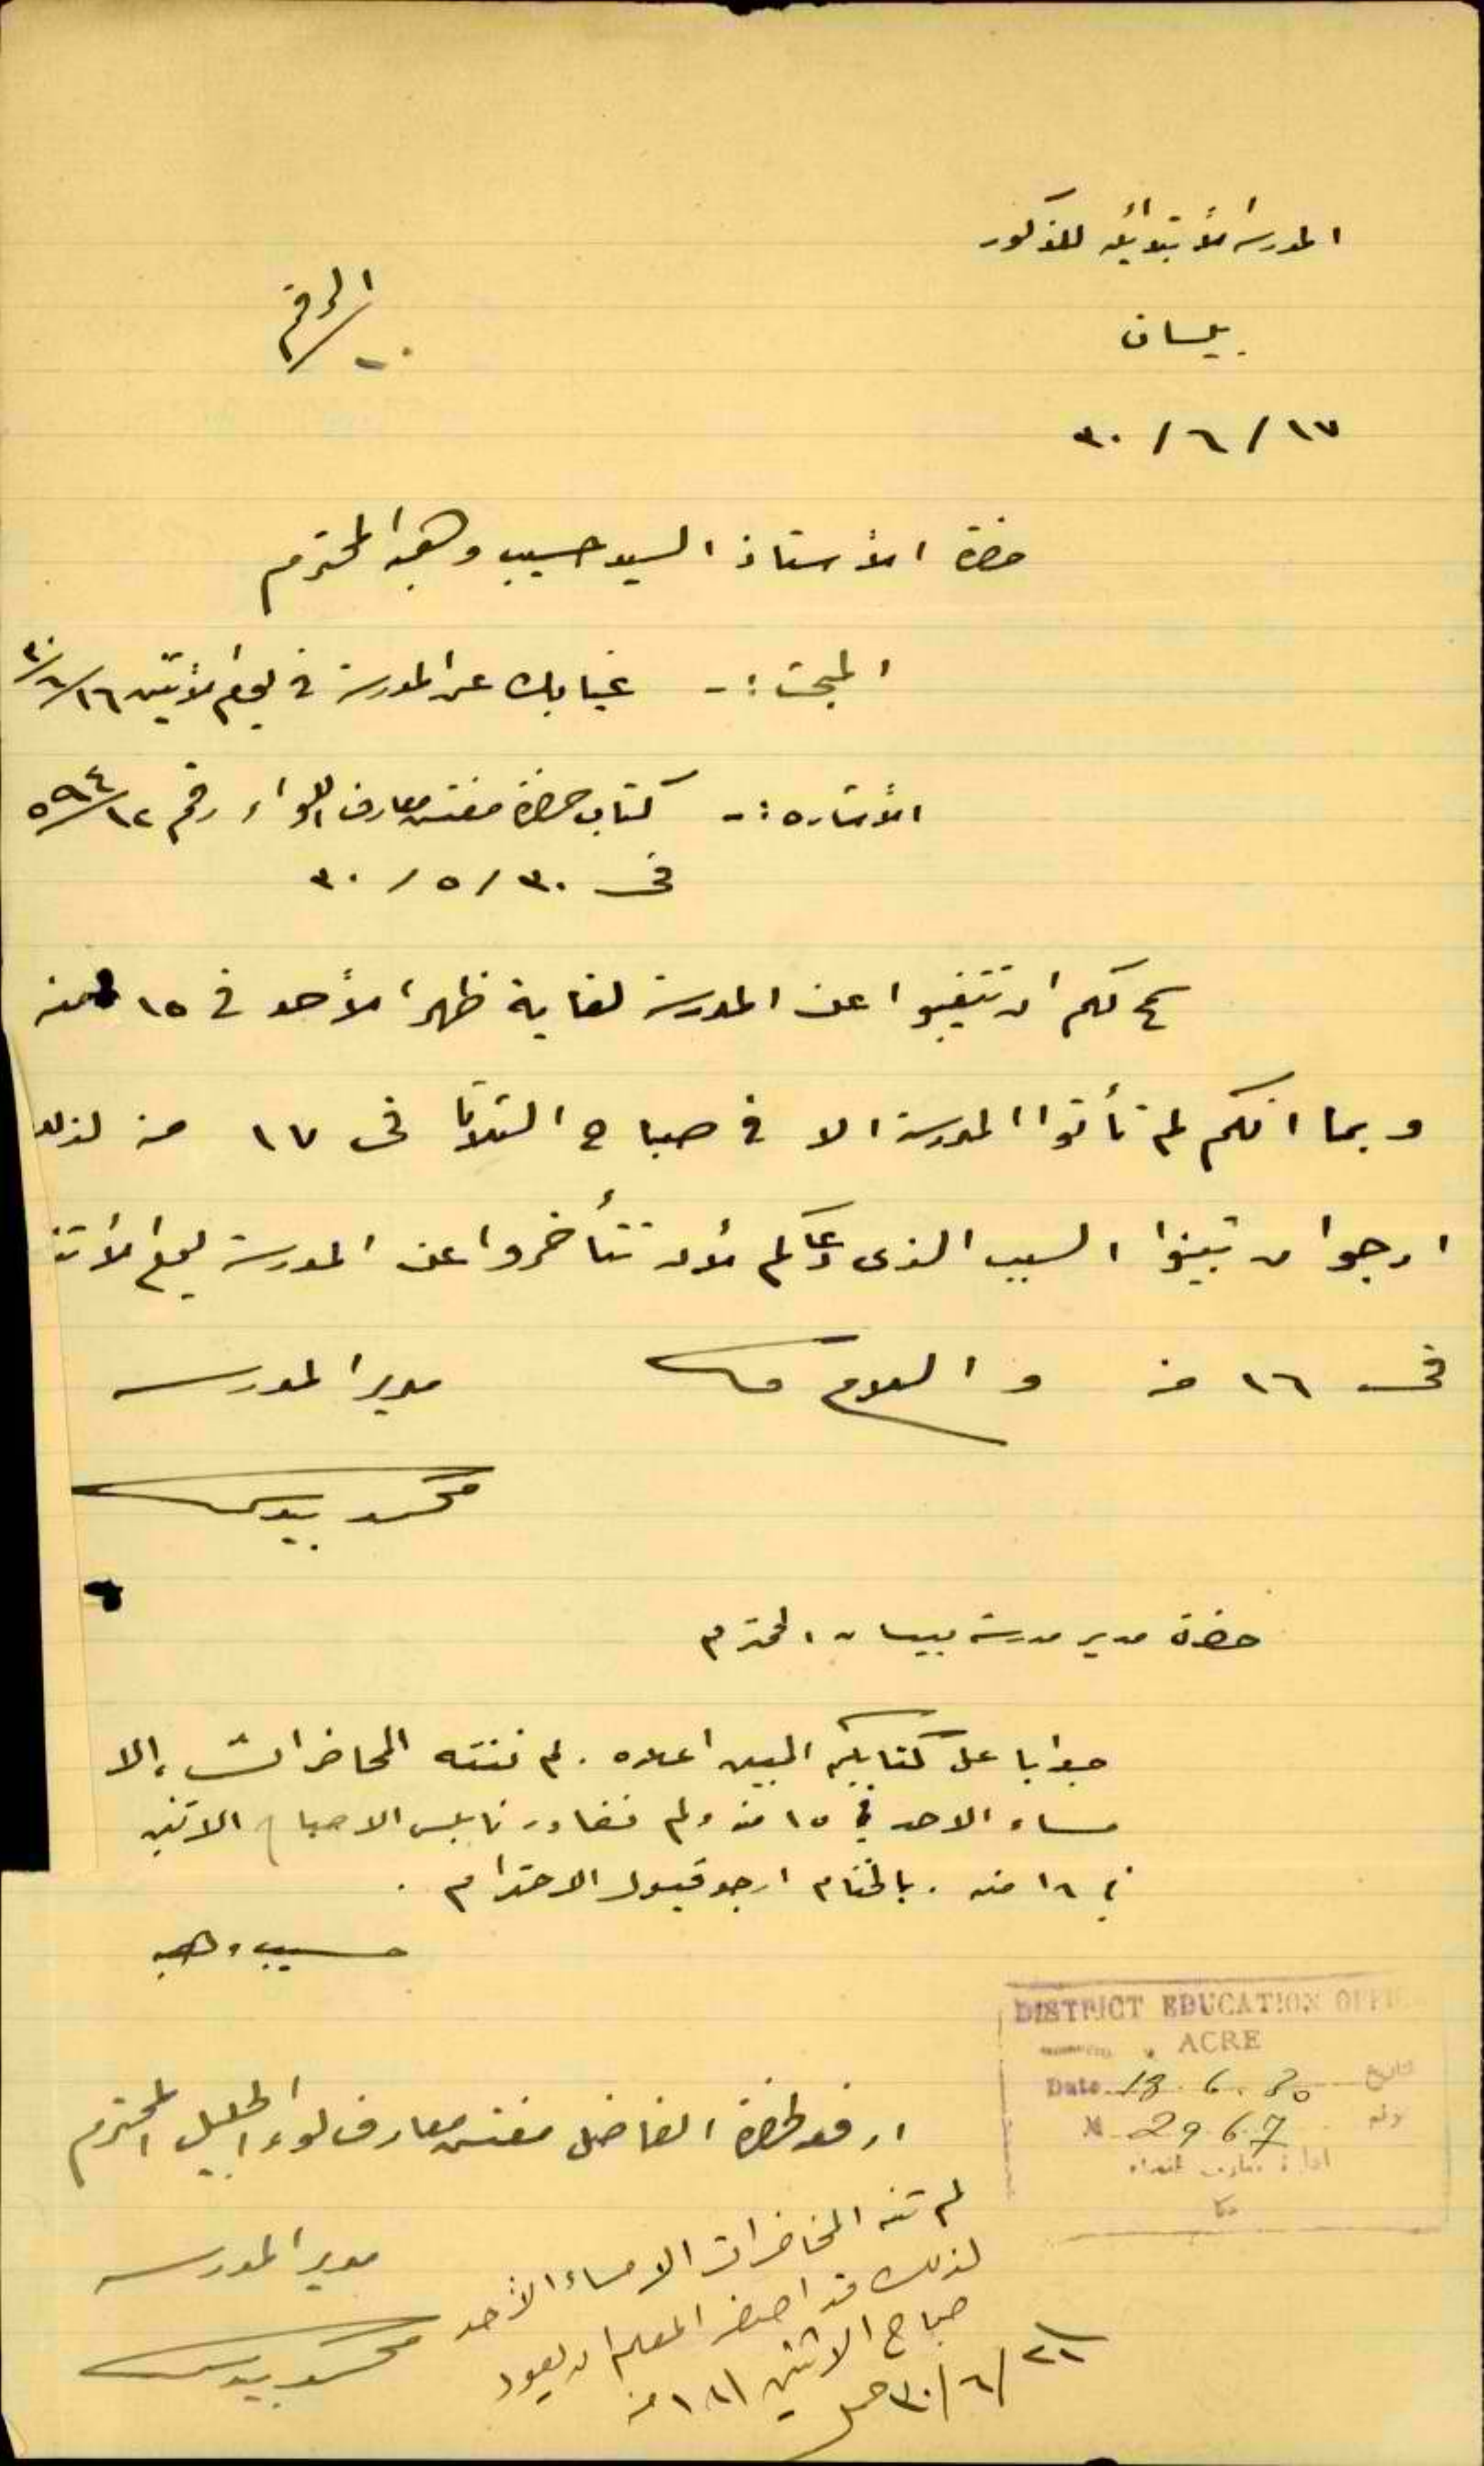 المدرسة الأبتدائيه للذكور
الرقم
بيسان
١٧ / ٦ / ٣٠
حضرة الأستاذ السيد حسيب وهبه المحترم
المبحث :- غيابك عن المدرسة في يوم الأثنين ١٦/٦/٣٠
الأشاره :- كتاب حضرة مفتش معارف اللواء رقم ٥٩٤/١٢
في ٣٠ / ٥ / ٣٠
لكم ان تتغيبوا عن المدرسة لغاية ظهر الأحد في ١٥ منه
وبما انكم لم تأتوا المدرسة الا في صباح الثلاثا في ١٧ منه لذلك
ارجو ان تبينوا السبب الذى دعاكم لأن تتأخروا عن المدرسة يوم الأثنين
في ١٦ منه والسلام
مدير المدرسه
محمد بيدس
حضرة مدير مدرسة بيسان المحترم
جوابا على كتابكم المبين اعلاه . لم تنته المحاضرات إلا
مساء الاحد في ١٥ منه ولم نغادر نابلس الا صباح الاثنين
في ١٦ منه . بالختام ارجو قبول الاحترام .
حسيب وهبه
DISTRICT EDUCATION OFFICE
ACRE
Date 18.6.30 التاريخ
N 2967
ادارة معارف اللواء
عكا
ارفعه لحضرة الفاضل مفتش معارف لواء الجليل المحترم
مدير المدرسه
محمد بيدس
لم تنته المحاضرات الا مساء الأحد
لذلك قد اضطر المعلم ان يعود
صباح الاثنين ١٦ منه
٢١/٦/٣٠